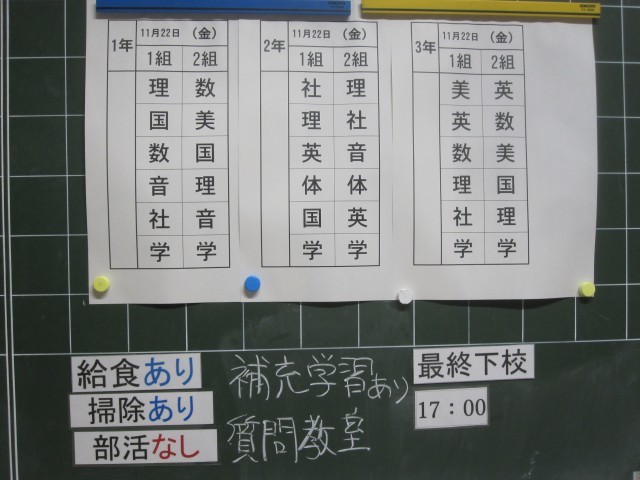 1年 11月22日 (金)
1組 2組
理 数
国 美
数 国
音 理
社 音
学 学
2年 11月22日 (金)
1組 2組
社 理
理 社
英 音
体 体
国 英
学 学
3年 11月22日 (金)
1組 2組
美 英
英 数
数 美
理 国
社 理
学 学
給食あり
掃除あり
部活なし
補充学習あり
質問教室
最終下校
17：00